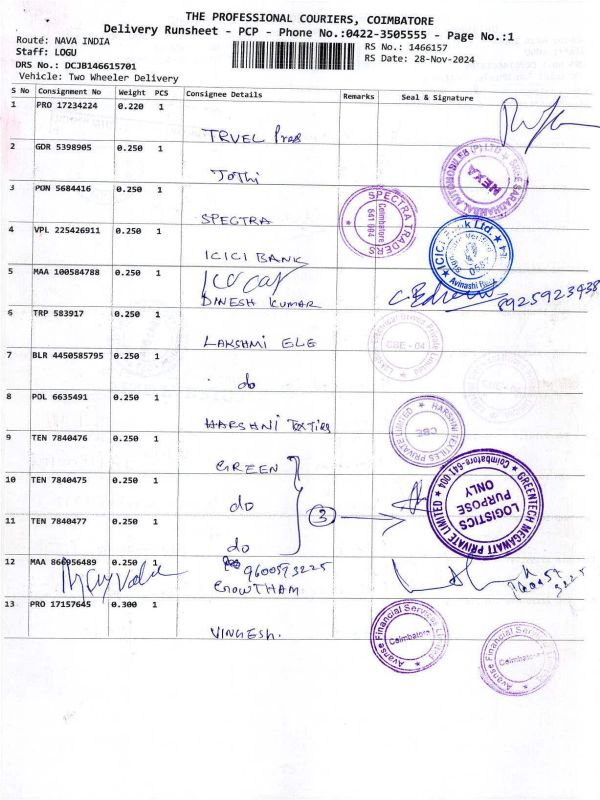 THE PROFESSIONAL COURIERS, COIMBATORE
Delivery Runsheet - PCP - Phone No.:0422-3505555 - Page No.:1
Route: NAVA INDIA
RS No.: 1466157
Staff: LOGU
RS Date: 28-Nov-2024
DRS No.: DCJB146615701
Vehicle: Two Wheeler Delivery
S No Consignment No Weight PCS Consignee Details Remarks Seal & Signature
1 PRO 17234224 0.220 1
TRVEL
2 GDR 5398905 0.250 1
Jothi
NEXA
3 PON 5684416 0.250 1
SPECTRA
SPECTRA TRADERS
Coimbatore
641 004
4 VPL 225426911 0.250 1
ICICI BANK
ICICI Bank Ltd.
Avinashi Road
5 MAA 100584788 0.250 1
DINESH KUMAR
8925923438
6 TRP 583917 0.250 1
LAKSHMI ELE
CBE - 04
7 BLR 4450585795 0.250 1
do
8 POL 6635491 0.250 1
HARSHNI
HARSHNI TEXTILES PRIVATE LIMITED
CBE
9 TEN 7840476 0.250 1
GREEN
10 TEN 7840475 0.250 1
do
3
GREENTECH MEGAWATT PRIVATE LIMITED
Coimbatore-641 004
LOGISTICS
PURPOSE
ONLY
11 TEN 7840477 0.250 1
do
12 MAA 866956489 0.250 1
9600593225
GOWTHAM
13 PRO 17157645 0.300 1
VINGESH.
Avanse Financial Services Limited
Coimbatore
Avanse Financial Services Limited
Coimbatore